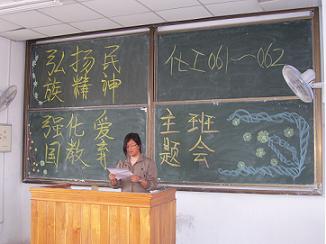 弘扬民
族精神
化工061～062
强化爱
国教育
主题
班会